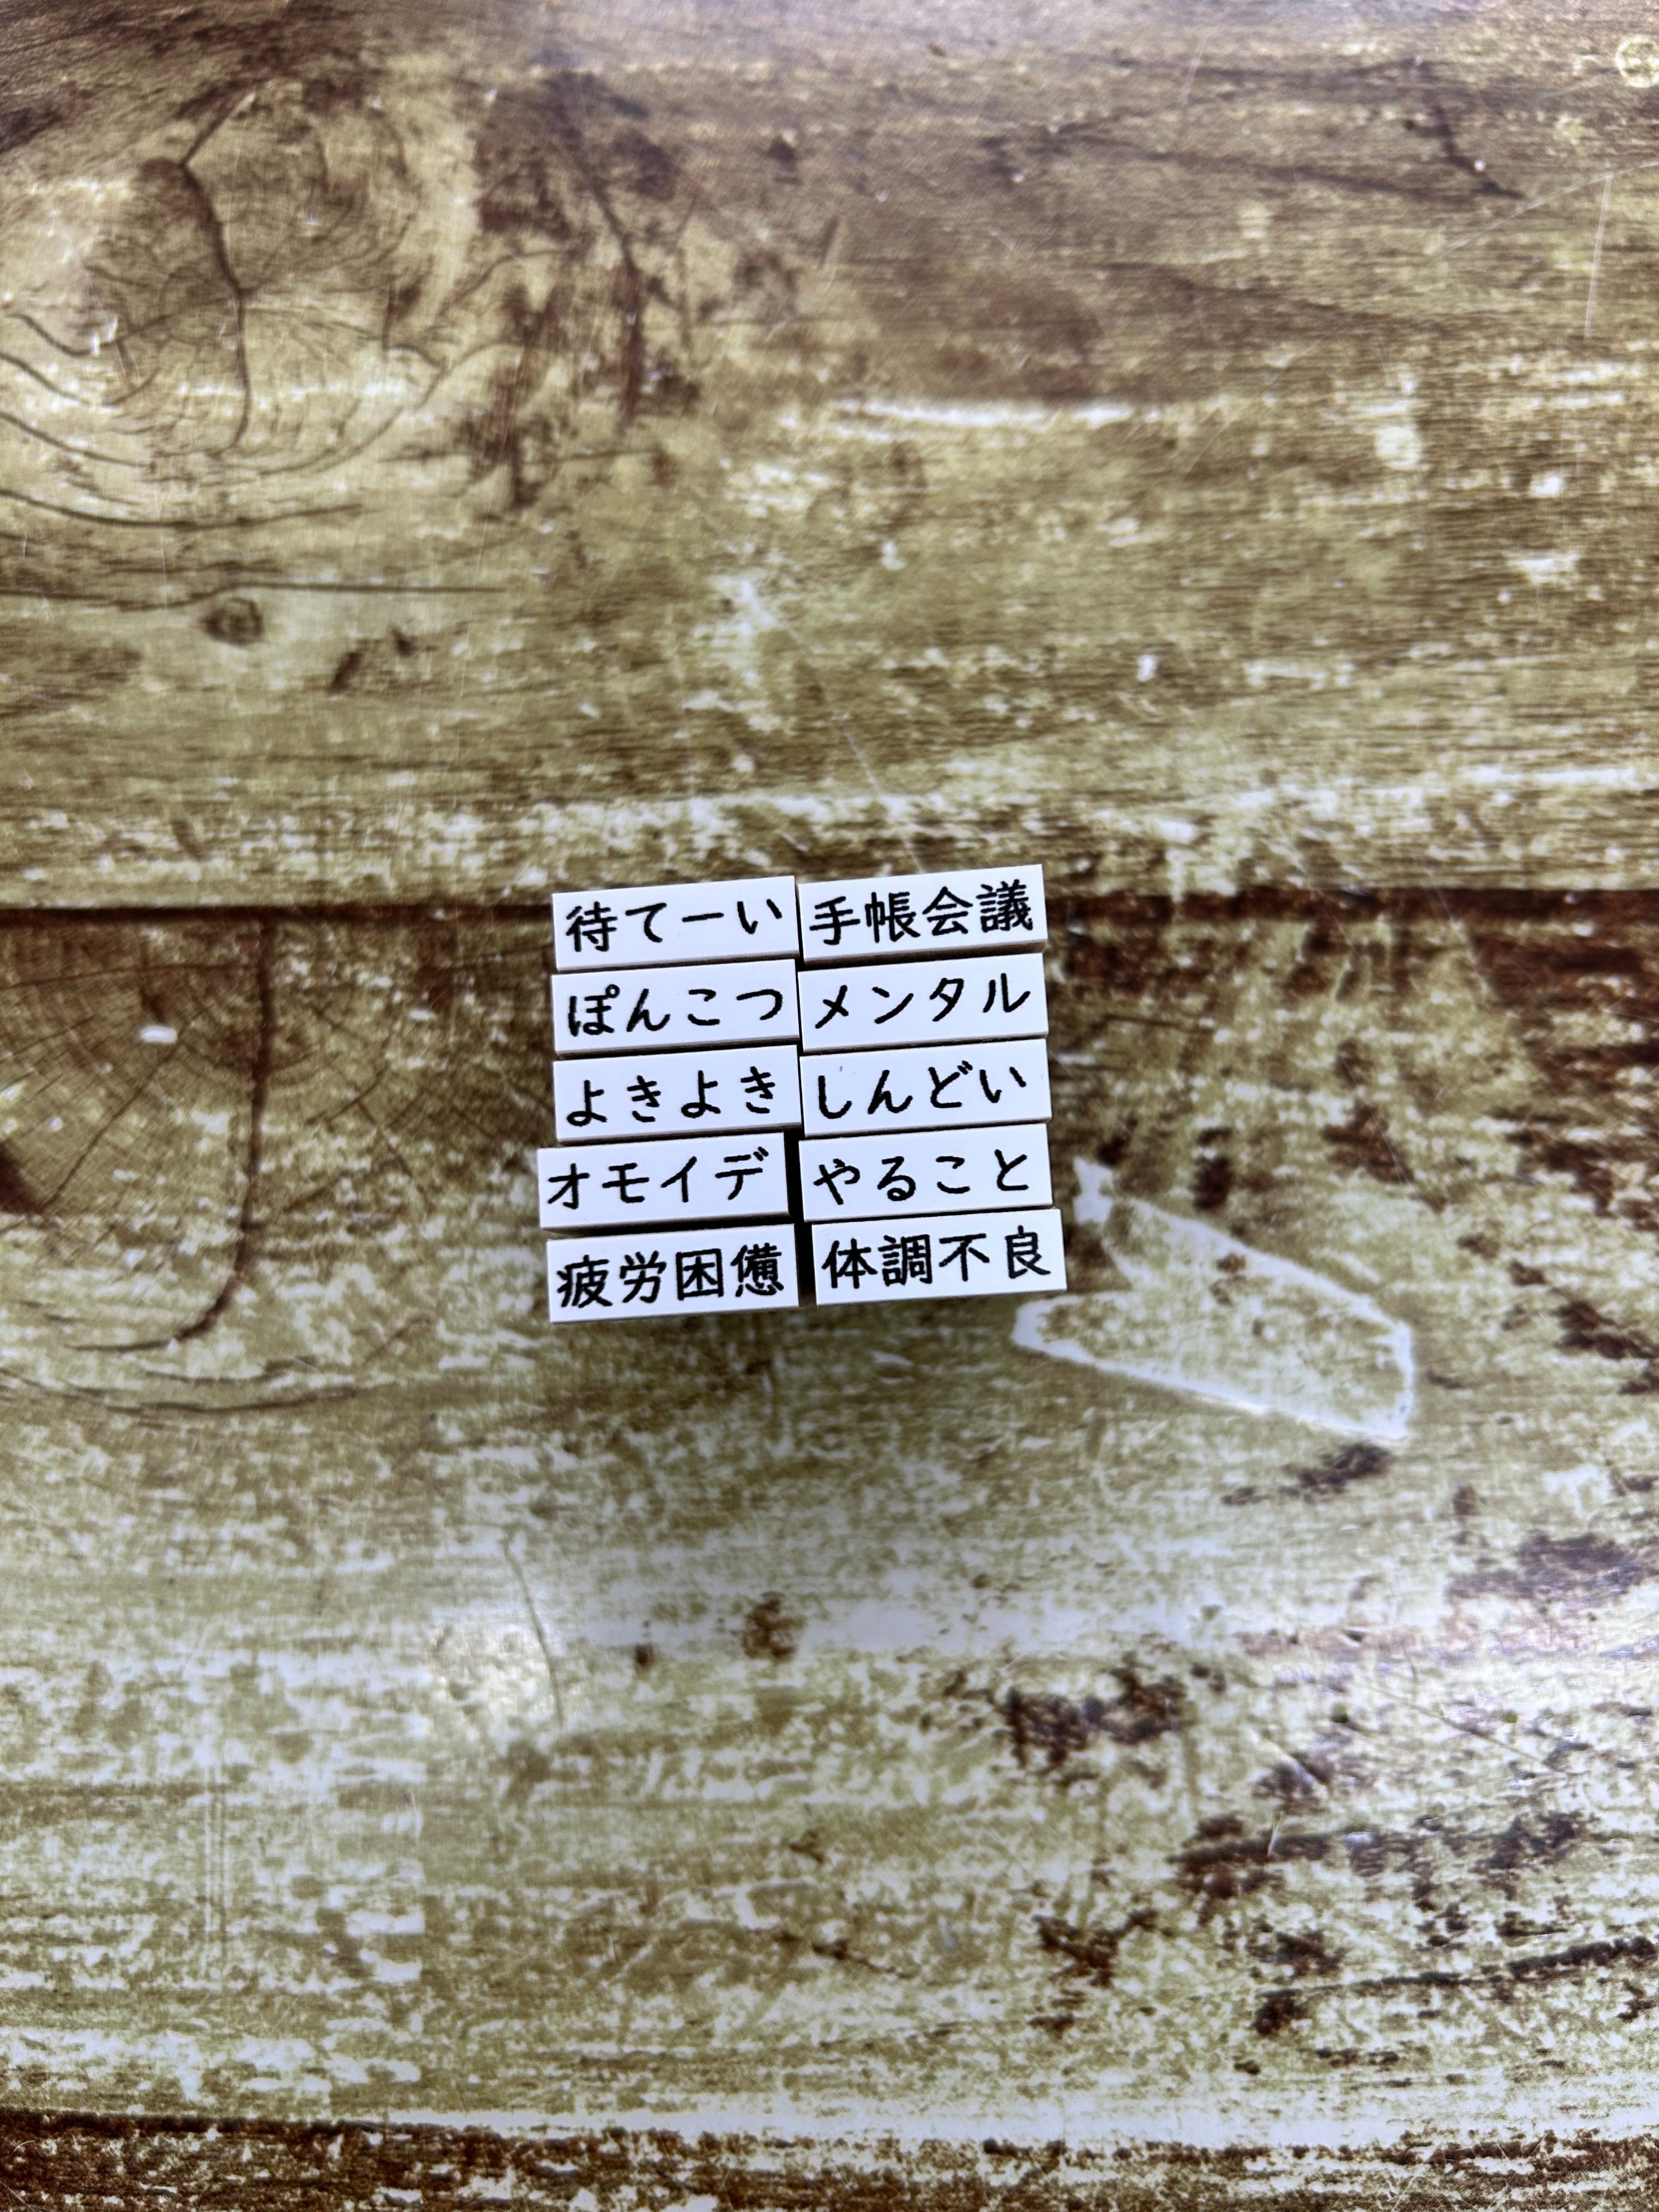 待てーい 手帳会議
ぽんこつ メンタル
よきよき しんどい
オモイデ やること
疲労困憊 体調不良